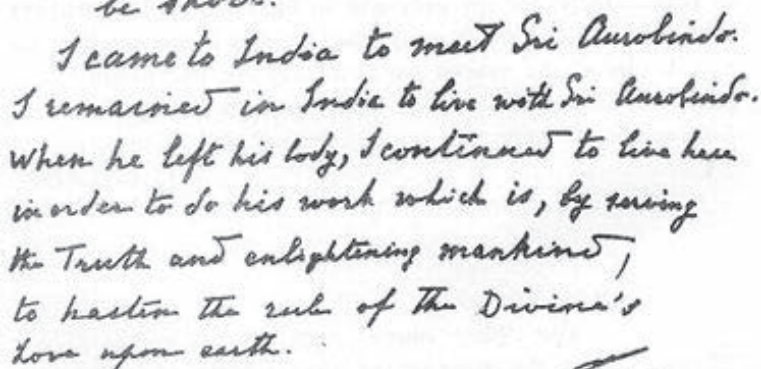 be short.
I came to India to meet Sri Aurobindo.
I remained in India to live with Sri Aurobindo.
When he left his body, I continued to live here
in order to do his work which is, by serving
the Truth and enlightening mankind,
to hasten the rule of the Divine's
Love upon earth.